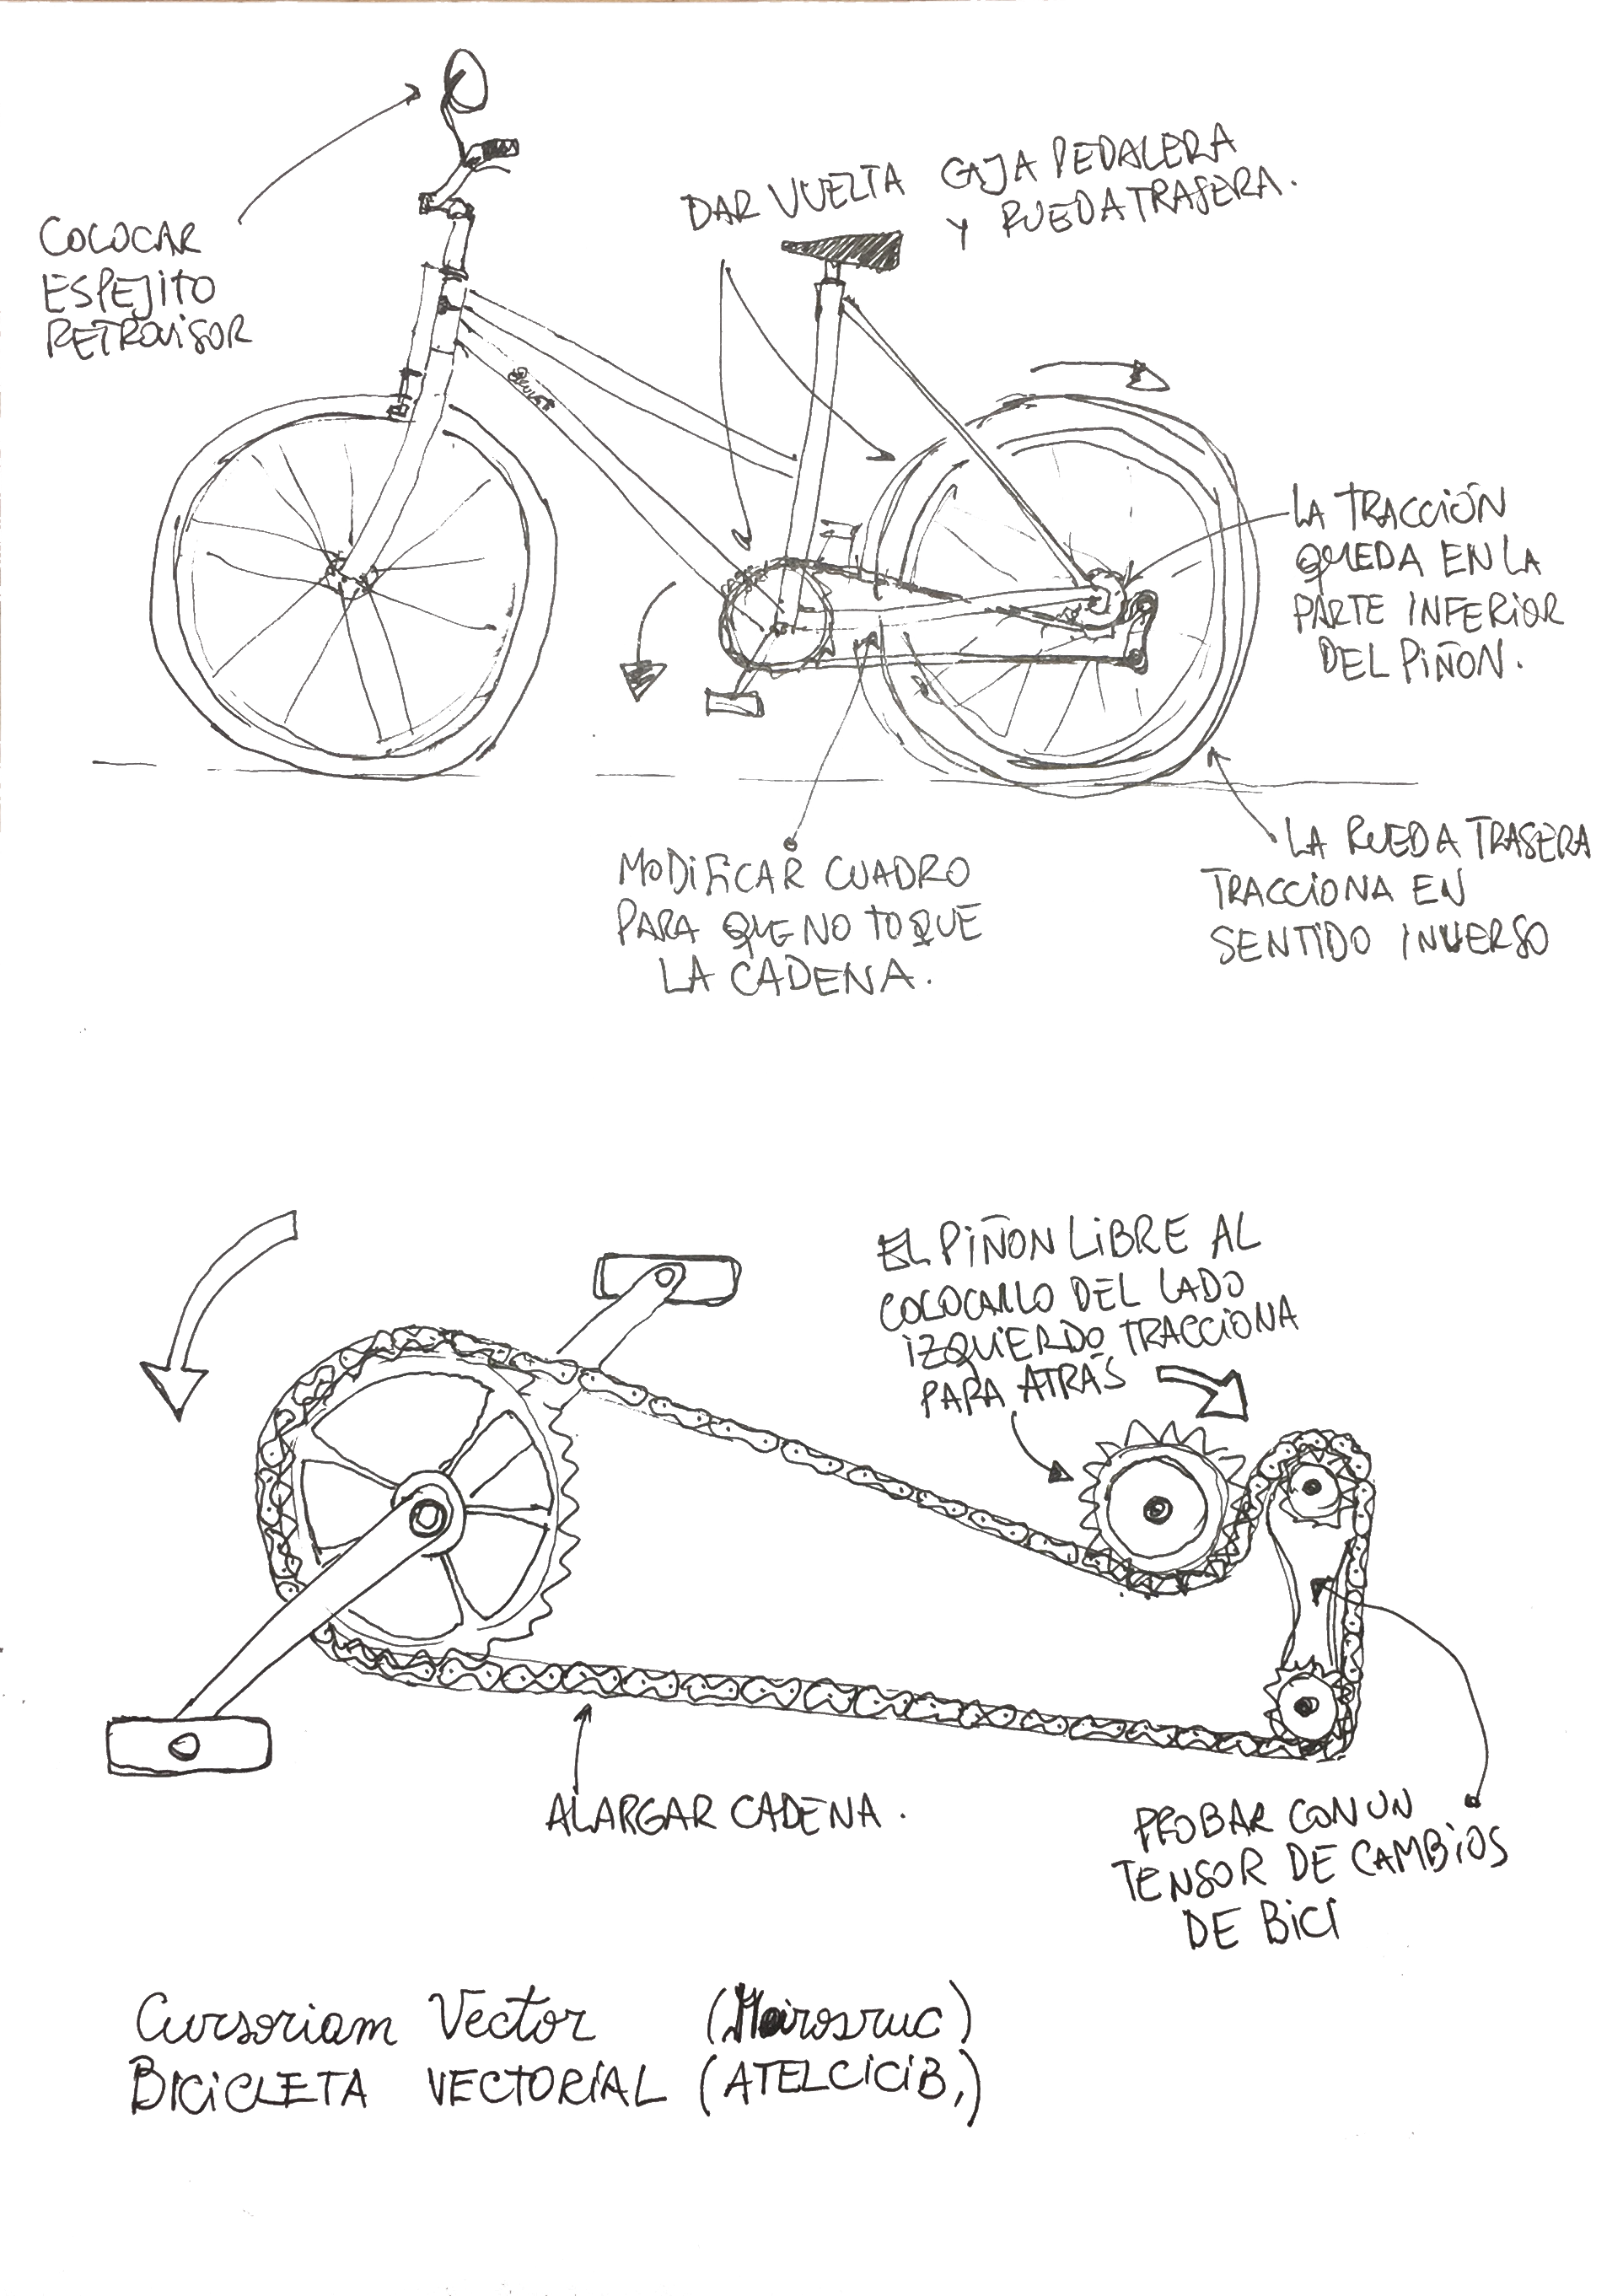 COLOCAR
ESPEJITO
RETROVISOR
DAR VUELTA CAJA PEDALERA
Y RUEDA TRASERA.
LA TRACCIÓN
QUEDA EN LA
PARTE INFERIOR
DEL PIÑON.
MODIFICAR CUADRO
PARA QUE NO TOQUE
LA CADENA.
LA RUEDA TRASERA
TRACCIONA EN
SENTIDO INVERSO
EL PIÑON LIBRE AL
COLOCARLO DEL LADO
IZQUIERDO TRACCIONA
PARA ATRÁS
ALARGAR CADENA.
PROBAR CON UN
TENSOR DE CAMBIOS
DE BICI
Cursoriam Vector (Mairosruc)
BICICLETA VECTORIAL (ATELCICIB,)